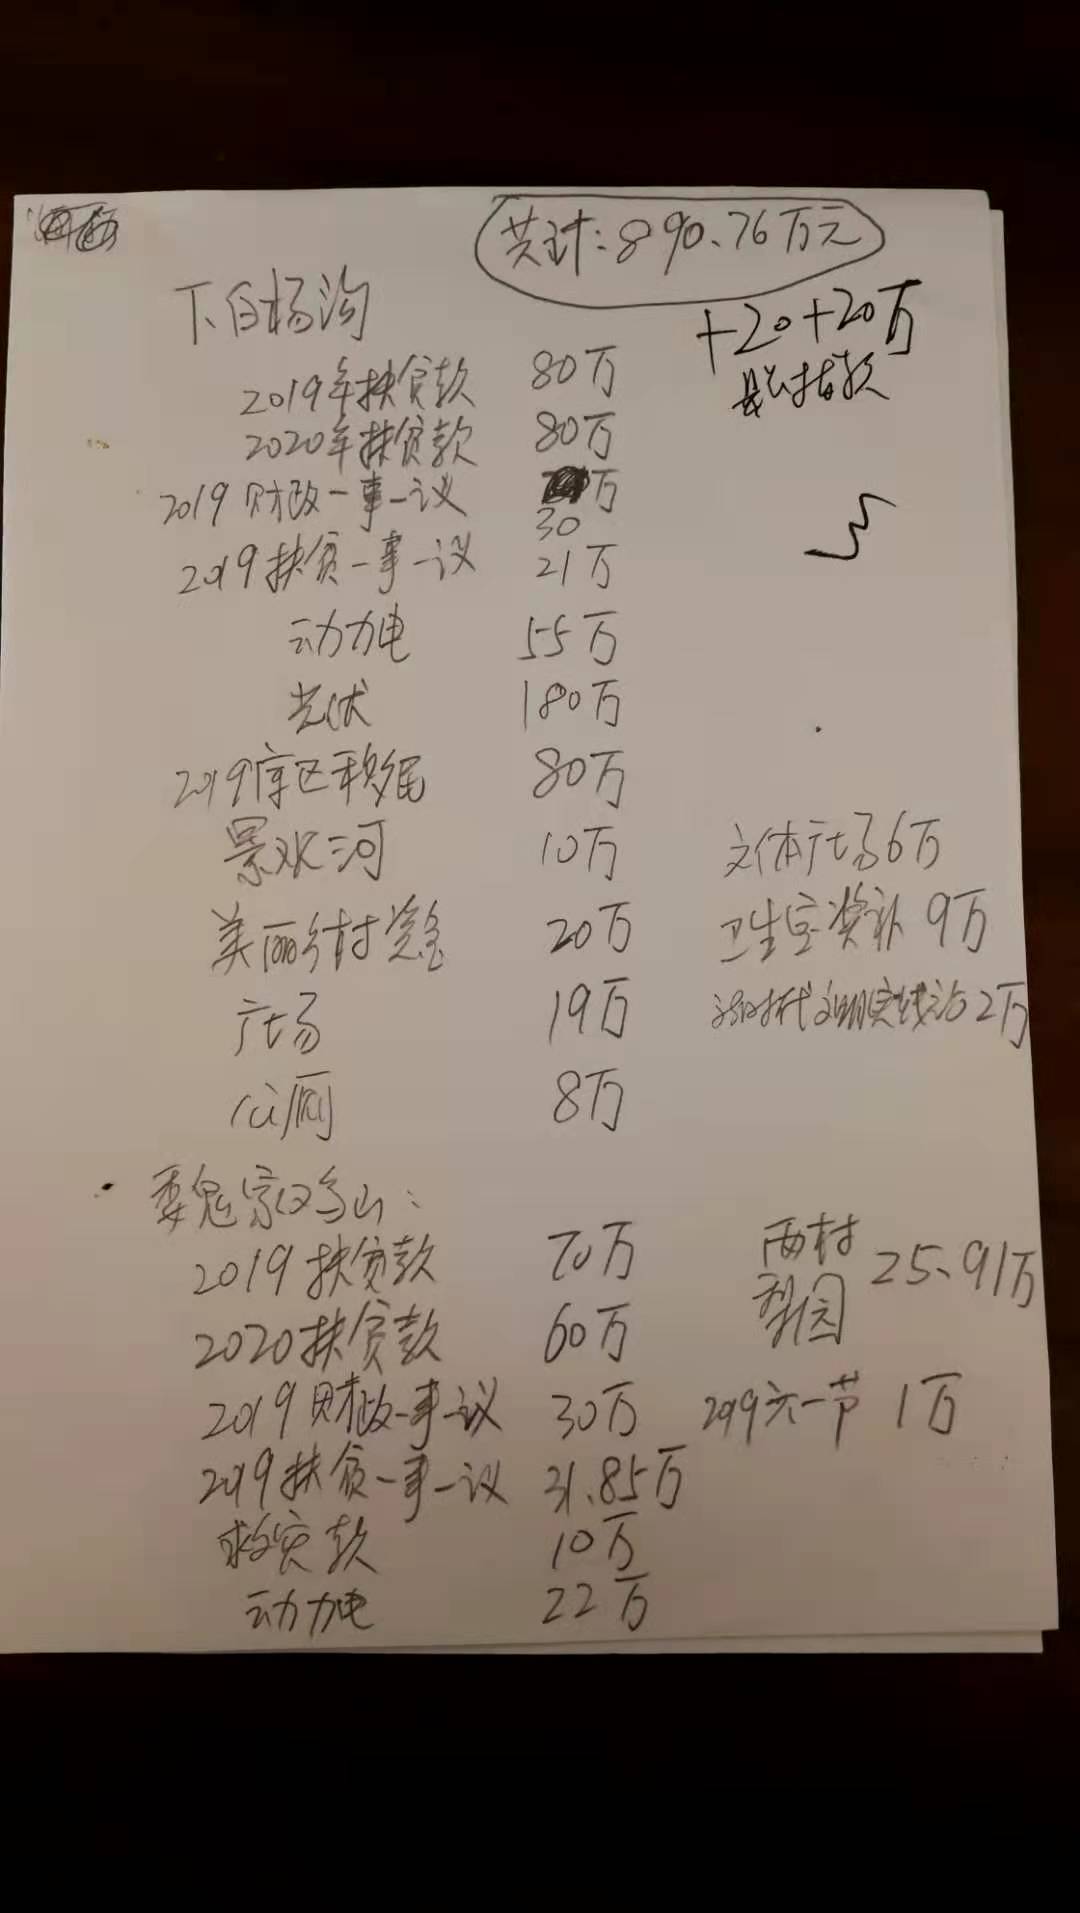 共计:890.76万元
+20+20万
下白杨沟
2019年扶贫款 80万
2020年扶贫款 80万
2019财政一事一议 万
30
2019扶贫一事一议 21万
动力电 55万
光伏 180万
2019库区移民 80万
景观河 10万 文体广场6万
美丽乡村资金 20万 卫生室奖补 9万
广场 19万 新时代文明实践站2万
公厕 8万
2019扶贫款 70万 两村
梨园 25.91万
2020扶贫款 60万
2019财政一事一议 30万 2019六一节 1万
2019扶贫一事一议 31.85万
救灾款 10万
动力电 22万